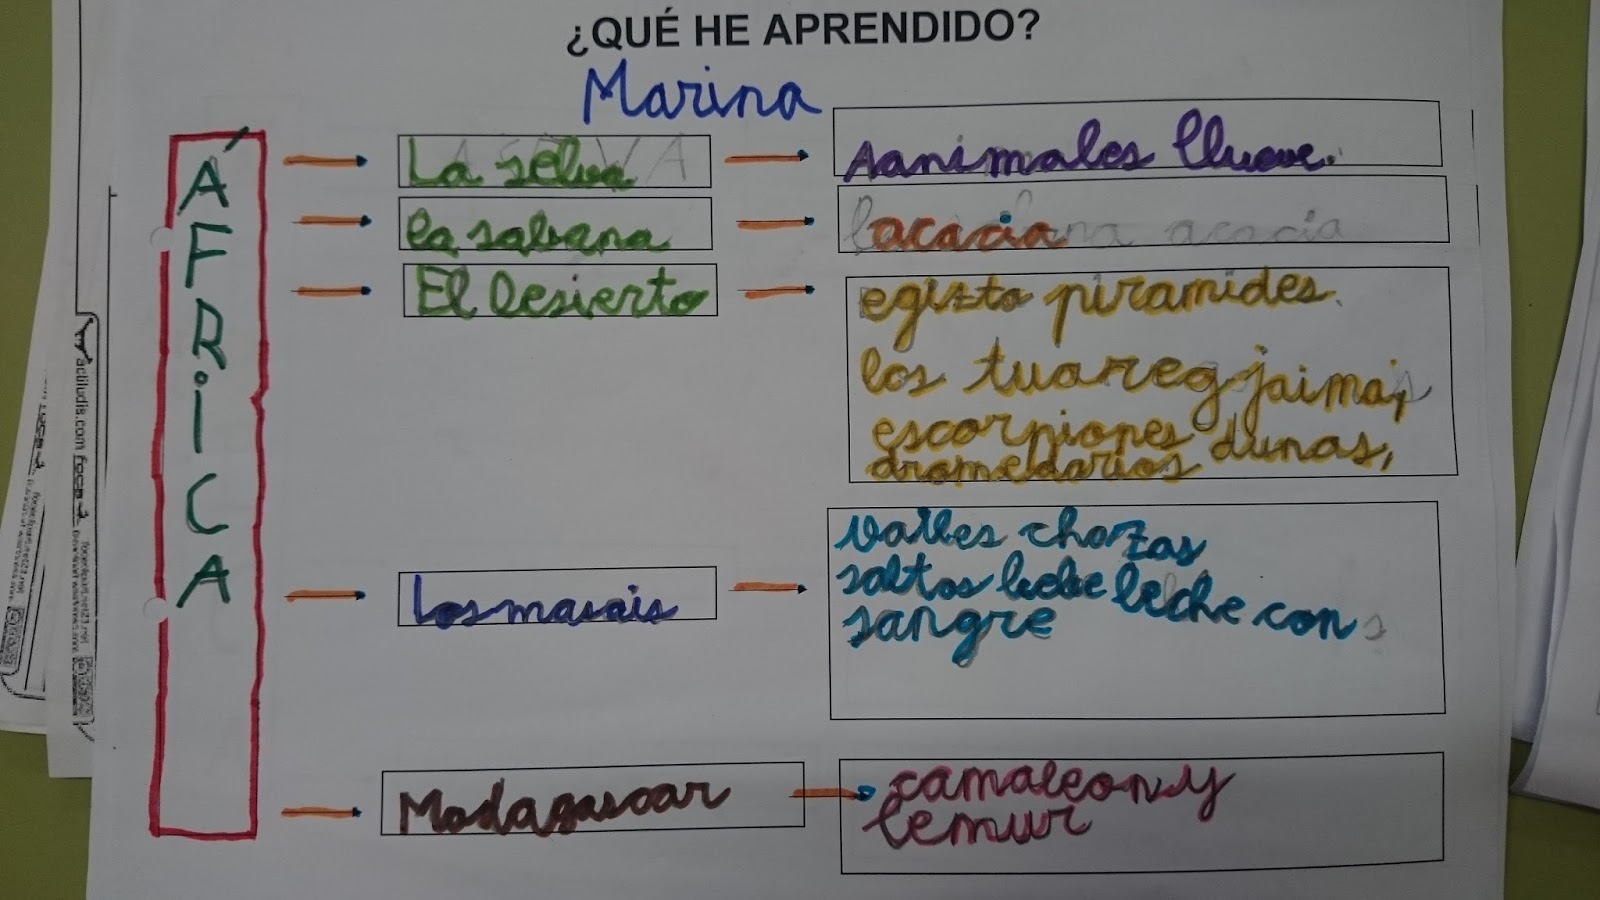 ¿QUÉ HE APRENDIDO?
Marina
ÁFRICA
La selva
Aanimales llueve.
la sabana
acacia
El Desierto
egizto piramides.
los tuareg jaimas,
escorpiones dunas,
dromedarios
Los masais
valles chozas
saltos bebe leche con
sangre
Madagascar
camaleon y
lemur
actiludis.com